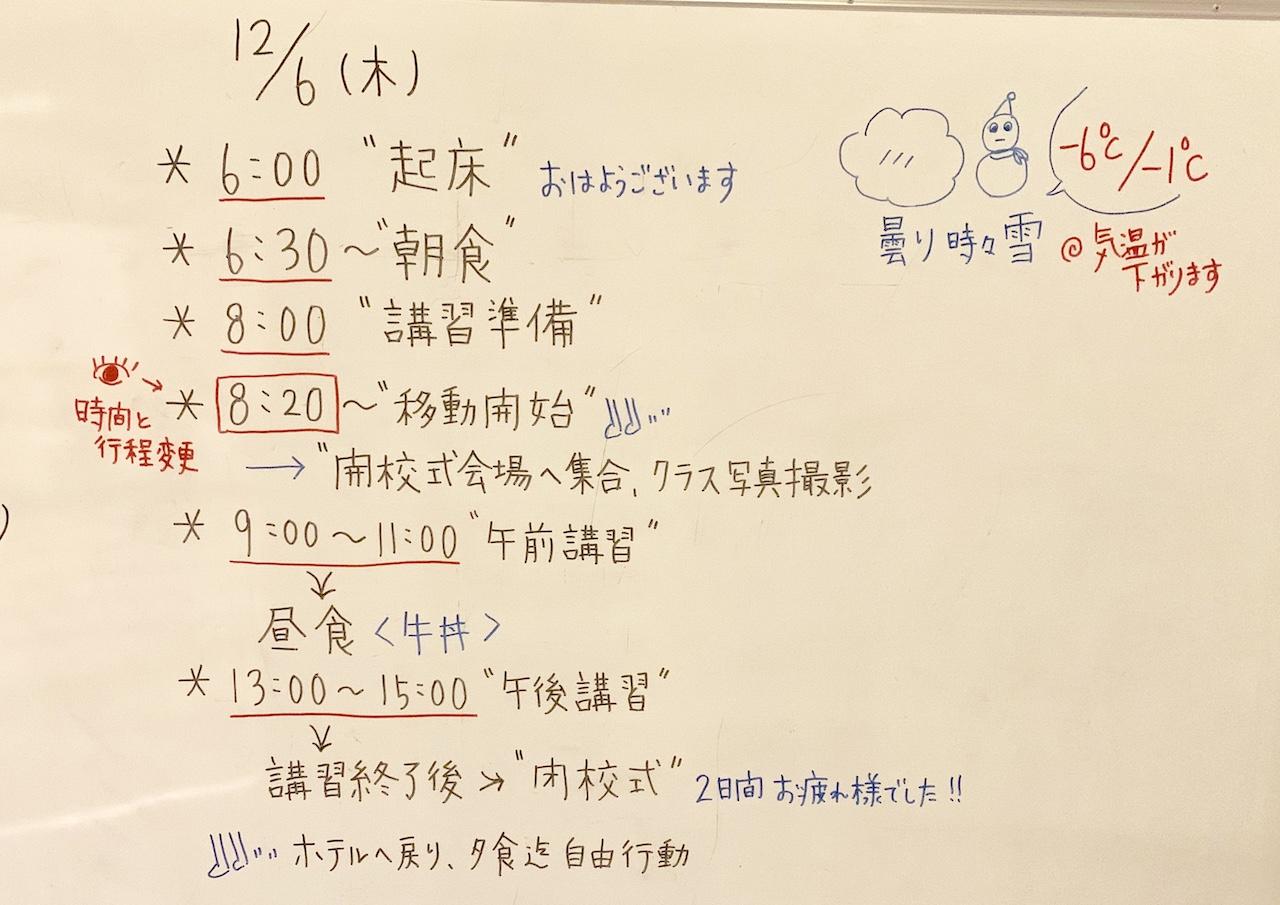 12/6(木)
* 6:00 "起床" おはようございます
* 6:30〜"朝食"
* 8:00 "講習準備"
時間と
行程変更
* 8:20〜"移動開始"
→ "開校式会場へ集合、クラス写真撮影
* 9:00〜11:00 "午前講習"
↓
昼食〈牛丼〉
* 13:00〜15:00 "午後講習"
↓
講習終了後→"閉校式" 2日間お疲れ様でした!!
ホテルへ戻り、夕食迄自由行動
-6℃/-1℃
曇り時々雪 @気温が
下がります